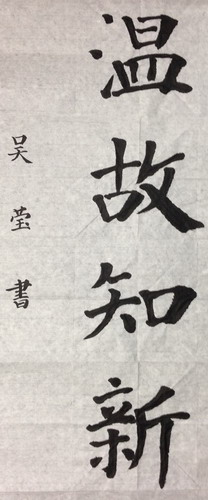 温故知新
吴莹書